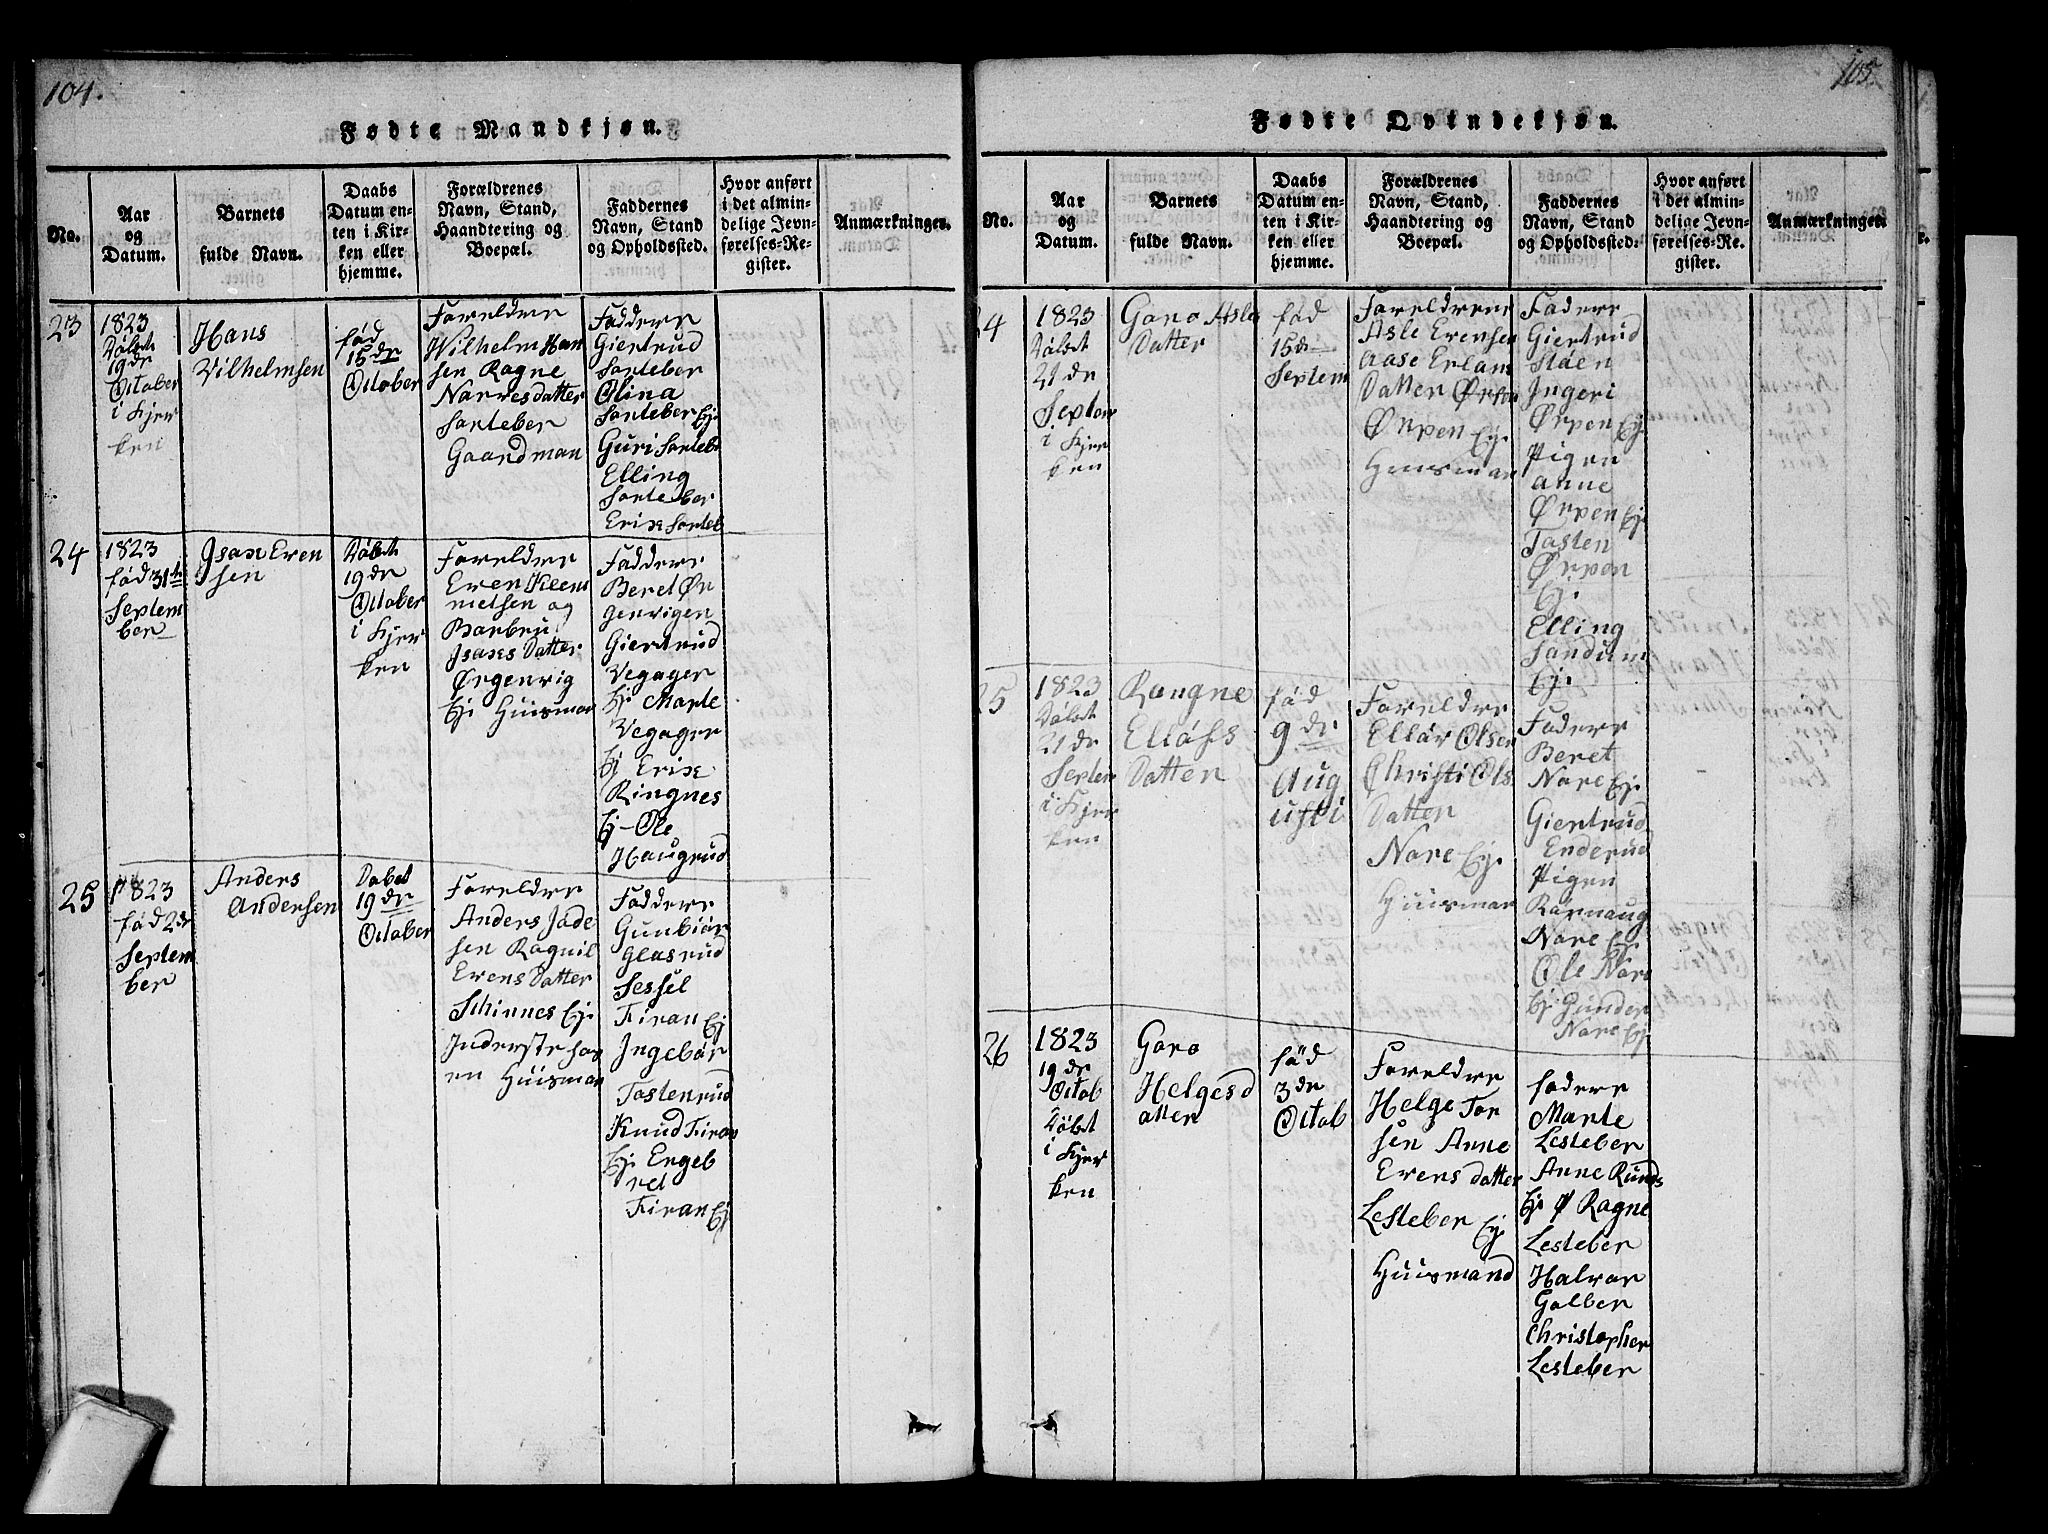 104.
Fødte Mandkjøn.
No.
Aar
og
Datum.
Barnets
fulde Navn.
Daabs
Datum en-
ten i Kir-
ken eller
hjemme.
Forældrenes
Navn, Stand,
Haandtering og
Boepæl.
Faddernes
Navn, Stand
og Opholdssted.
Hvor anført
i det almin-
delige Jevn-
førelses-Re-
gister.
Anmærkninger.
23
1823
Döbt
19 de
October
i Kjer
ken
Hans
Vilhelmsen
fød
15 de
October
Foreldre
Wilhelm Han
sen Ragne
Narvesdatter
Sorteber
Gaardman
Faddere
Giertrud
Sorteber
Olina
Sorteber Ej.
Guri Sorteb
Elling
Sorteber
Erik Sorteb
24
1823
fød 31te
Septem
ber
Isax Even
sen
Döbt
19 de
October
i Kjer
ken
Foreldre
Even Klem
metsen og
Barbru
Isaxes Datter
Ørgenvig
Ej. Huusman
Faddere
Beret Ør
genvigen
Giertrud
Vegager
Ej Marte
Vegager
Ej Erik
Ringnes
Ej - Ole
Haugrud
25
1823
fød 2 de
Septem
ber
Anders
Andersen
Dobet
19 de
October
Foreldre
Anders Jode
sen Ragnil
Evens Datter
Skinnes Ej.
Inderste
en Huusman
Faddere
Gunbiör
Glasrud
Sessel
Firan Ej
Ingebör
Tostenrud
Knud Firan
Ej Engeb
ret
Firan Ej
105.
Fødte Qvindekjøn.
No.
Aar
og
Datum.
Barnets
fulde Navn.
Daabs
Datum en-
ten i Kir-
ken eller
hjemme.
Forældrenes
Navn, Stand,
Haandtering og
Boepæl.
Faddernes
Navn, Stand
og Opholdssted.
Hvor anført
i det almin-
delige Jevn-
førelses-Re-
gister.
Anmærkninger.
24
1823
Döbt
21 de
Septem
i Kjer
ken
Goro Asle
Datter
fød
15 de
Septem
Foreldrene
Asle Evensen
Aase Erlans
Datter
Ørpen Ej.
Huusman
Fadere
Giertrud
Støen
Ingeri
Ørpen Ej.
Pigen
Anne
Ørpen Ej.
Tosten
Ørpen
Ej.
Elling
Sandum
Ej.
25
1823
Döbt
21 de
Septem
i Kjer
ken
Rangne
Ellofs
Datter
fød
9 de
Aug
usti
Foreldre
Ellör Olsen
Christi Ols
Datter
Nore Ej.
Huusman
Fadere
Beret
Nore Ej.
Giertrud
Enderud
Pigen
Rønnaug
Nore Ej.
Ole Nore
Ej. Gunder
Nore Ej
26
1823
19 de
Octob
Döbt
i Kjer
ken
Goro
Helgesd
atter
fød
3 de
Octob
Foreldre
Helge Tor
sen Anne
Evens datter
Lesteber Ej
Huusmand
fadere
Marte
Lesteber
Anne Runds
Ej Ø Ragne
Lesteber
Halvor
Golber
Christopher
Lesteber